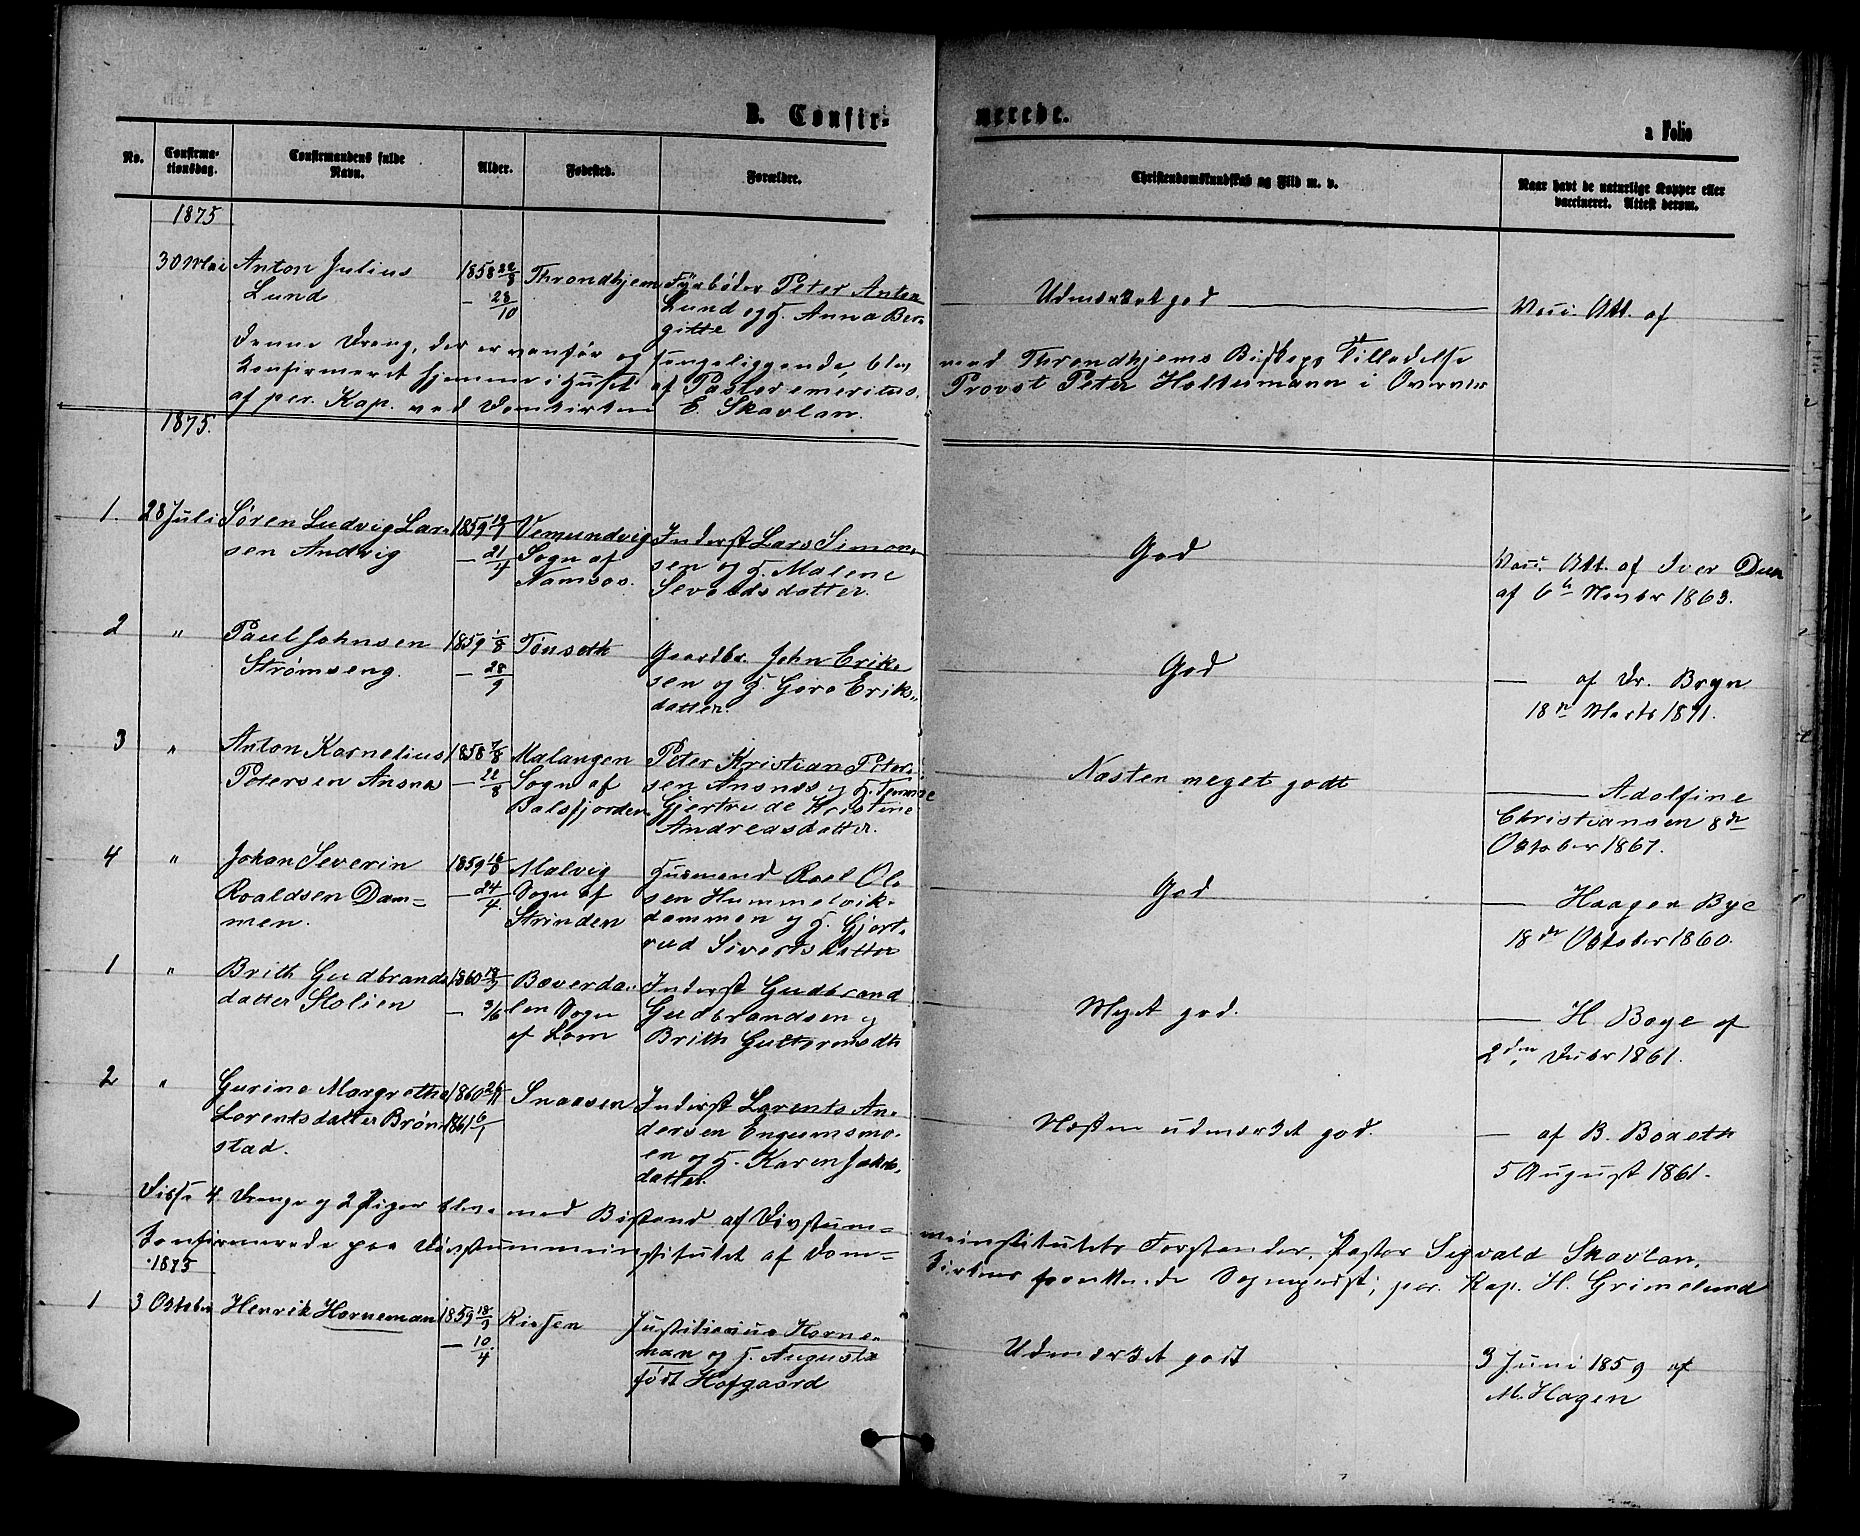 B. Confir-
merede.
a Folio
No.
Confirma-
tionsdag.
Confirmandens fulde
Navn.
Alder.
Fødested.
Forældre.
Christendomskundskab og Flid m. v.
Naar havt de naturlige Kopper eller
vaccineret. Attest derom.
1875
30 Mai
Anton Julius
Lund
1858 22/8
– 28/10
Throndhjem
Fyrbøder Peter Anton
Lund og H. Anna Ber-
gitte
Udmærket god
Vacc. Att. af
Denne Dreng, der er vanfør og sengeliggende, blev
Konfirmeret hjemme i Huset af Pastor emeritus,
af per. Kap. ved Domkirken E. Skavlan.
med Throndhjems Biskops Tilladelse
Provst Peter Holtermann i
1875.
1. 28 Juli
Søren Ludvig Lar-
sen Andvig
1859
– 21/4
Vemundvig
Sogn af
Namsos.
Inderst Lars Simon-
sen og H. Malene
Sevaldsdatter.
God
Vacc. Att. af Iver Duun
af 6te Novbr 1863.
2 "
Paul Johnsen
Strømseng.
1859 1/8
– 28/9
Tønseth
Gaardbr. John Erik-
sen og H. Goro Eriks-
datter.
God
— af Dr. Bryn
18de Marts 1871.
3 "
Anton Kornelius
Petersen Ansnes
1858 7/8
– 22/8
Malangen
Sogn af
Balsfjorden
Peter Kristian Peter-
sen Ansnæs og H.
Gjertrude Kristine
Andreasdatter.
Næsten meget godt
— Adolfine
Christiansen 8de
Oktober 1867.
4 "
Johan Severin
Roaldsen Dam-
men.
1859
– 24/4.
Malvig
Sogn af
Strinden
Husmand Roel Ol-
sen Hummelvik-
dammen og H. Gjert-
rud Sivertsdatter
God
— Haagen Bye
18de Oktober 1860.
1 "
Brith Gudbrands
datter Stolien
1860
– 3/6
Bæverda-
len Sogn
af Lom
Inderst Gudbrand
Gudbrandsen og
Brith Guttormsdtr
Meget god.
— H. Boye af
2den Decbr 1861.
2 "
Gurine Margrethe
Lorentsdatter Brøn-
stad.
1860 26/11
1861 6/1
Snaasen
Inderst Lorents An-
dersen Engumsmo-
en og H. Karen Jakobs-
datter
Næsten udmærket god.
— af B. Boxeth
5 August 1861.
Disse 4 Drenge og 2 Piger bleve med Bistand af Døvstum-
meinstitutets Forstander, Pastor Sigvald Skavlan,
Konfirmerede paa Døvstummeinstitutet af Dom-
kirkens forrettende Sognepræst, per. Kap. H. Grimelund
1875
1 3 Oktober
Henrik Horneman
1859 18/3
– 10/4
Rissen
Justitiarius Horne-
man og H. Augusta
født Hofgaard
Udmærket godt
3 Juni 1859 af
M. Hagen